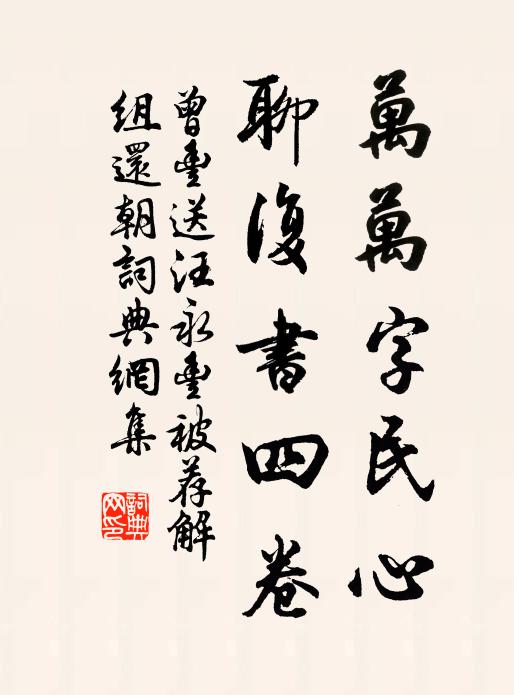 萬萬字民心
聊復書四卷
曾豐送汪永豐被荐解
組還朝詞典網集
詞典
网印